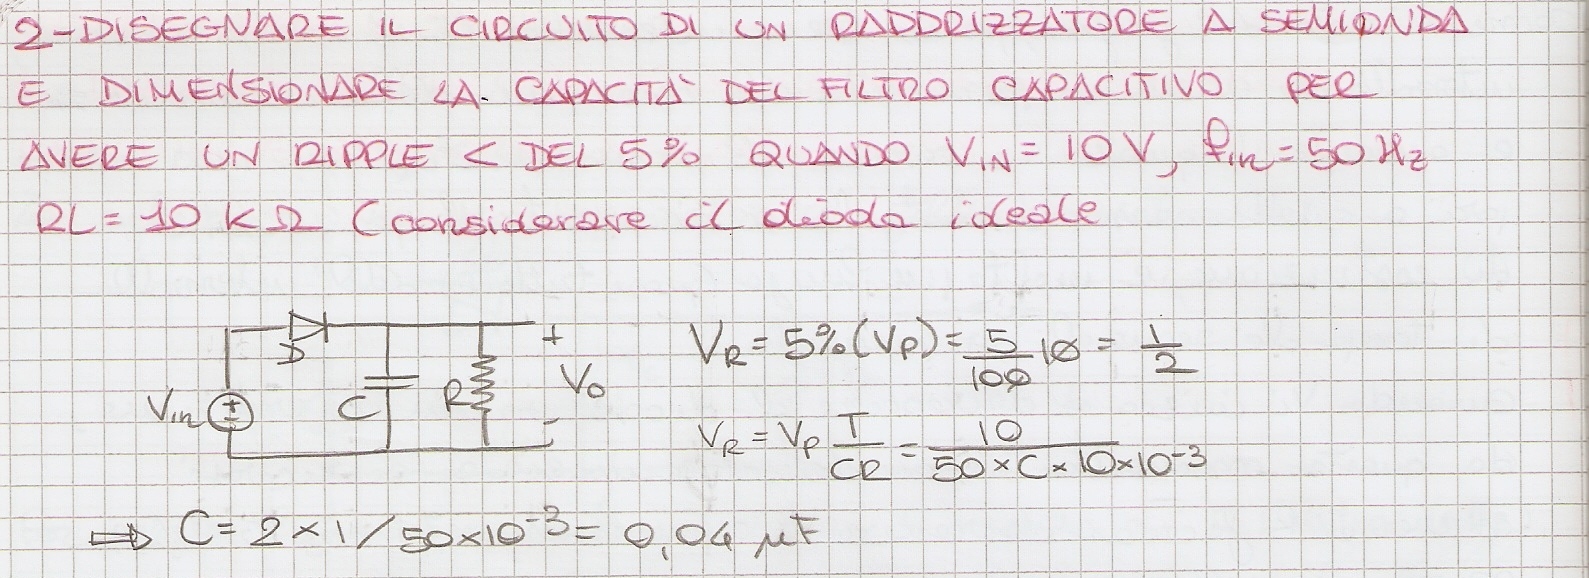 2-DISEGNARE IL CIRCUITO DI UN RADDRIZZATORE A SEMIONDA
E DIMENSIONARE LA CAPACITÀ DEL FILTRO CAPACITIVO PER
AVERE UN RIPPLE < DEL 5% QUANDO VIN = 10 V, fin = 50 Hz
RL = 10 KΩ (considerare il diodo ideale
D
Vin
C
R
+
Vo
-
VR = 5%(VP) = 5/100 10 = 1/2
VR = VP T/CR = 10/50×C×10×10-3
⇒ C = 2×1/50×10-3 = 0,04 μF